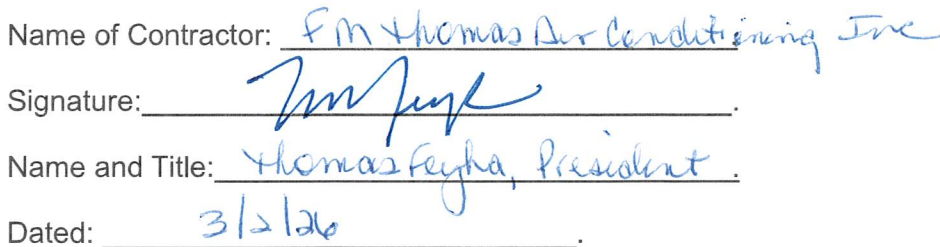 Name of Contractor: FM Thomas Air Conditioning Inc
Signature: .
Name and Title: Thomas Feyha, President .
Dated: 3/2/26 .